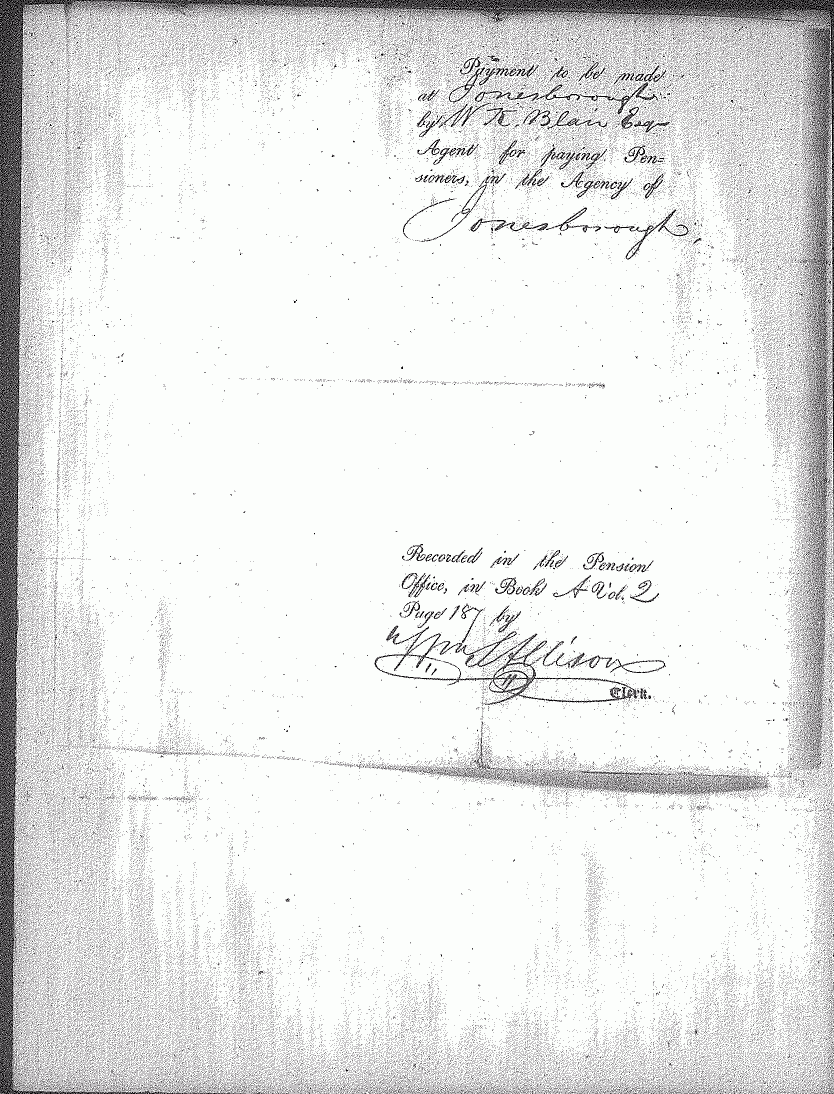 Payment to be made
at Jonesborough
by W K. Blair Esq
Agent for paying Pen=
sioners, in the Agency of
Jonesborough,
Recorded in the Pension
Office, in Book A Vol. 2
Page 187 by
Wm S Allison
Clerk.